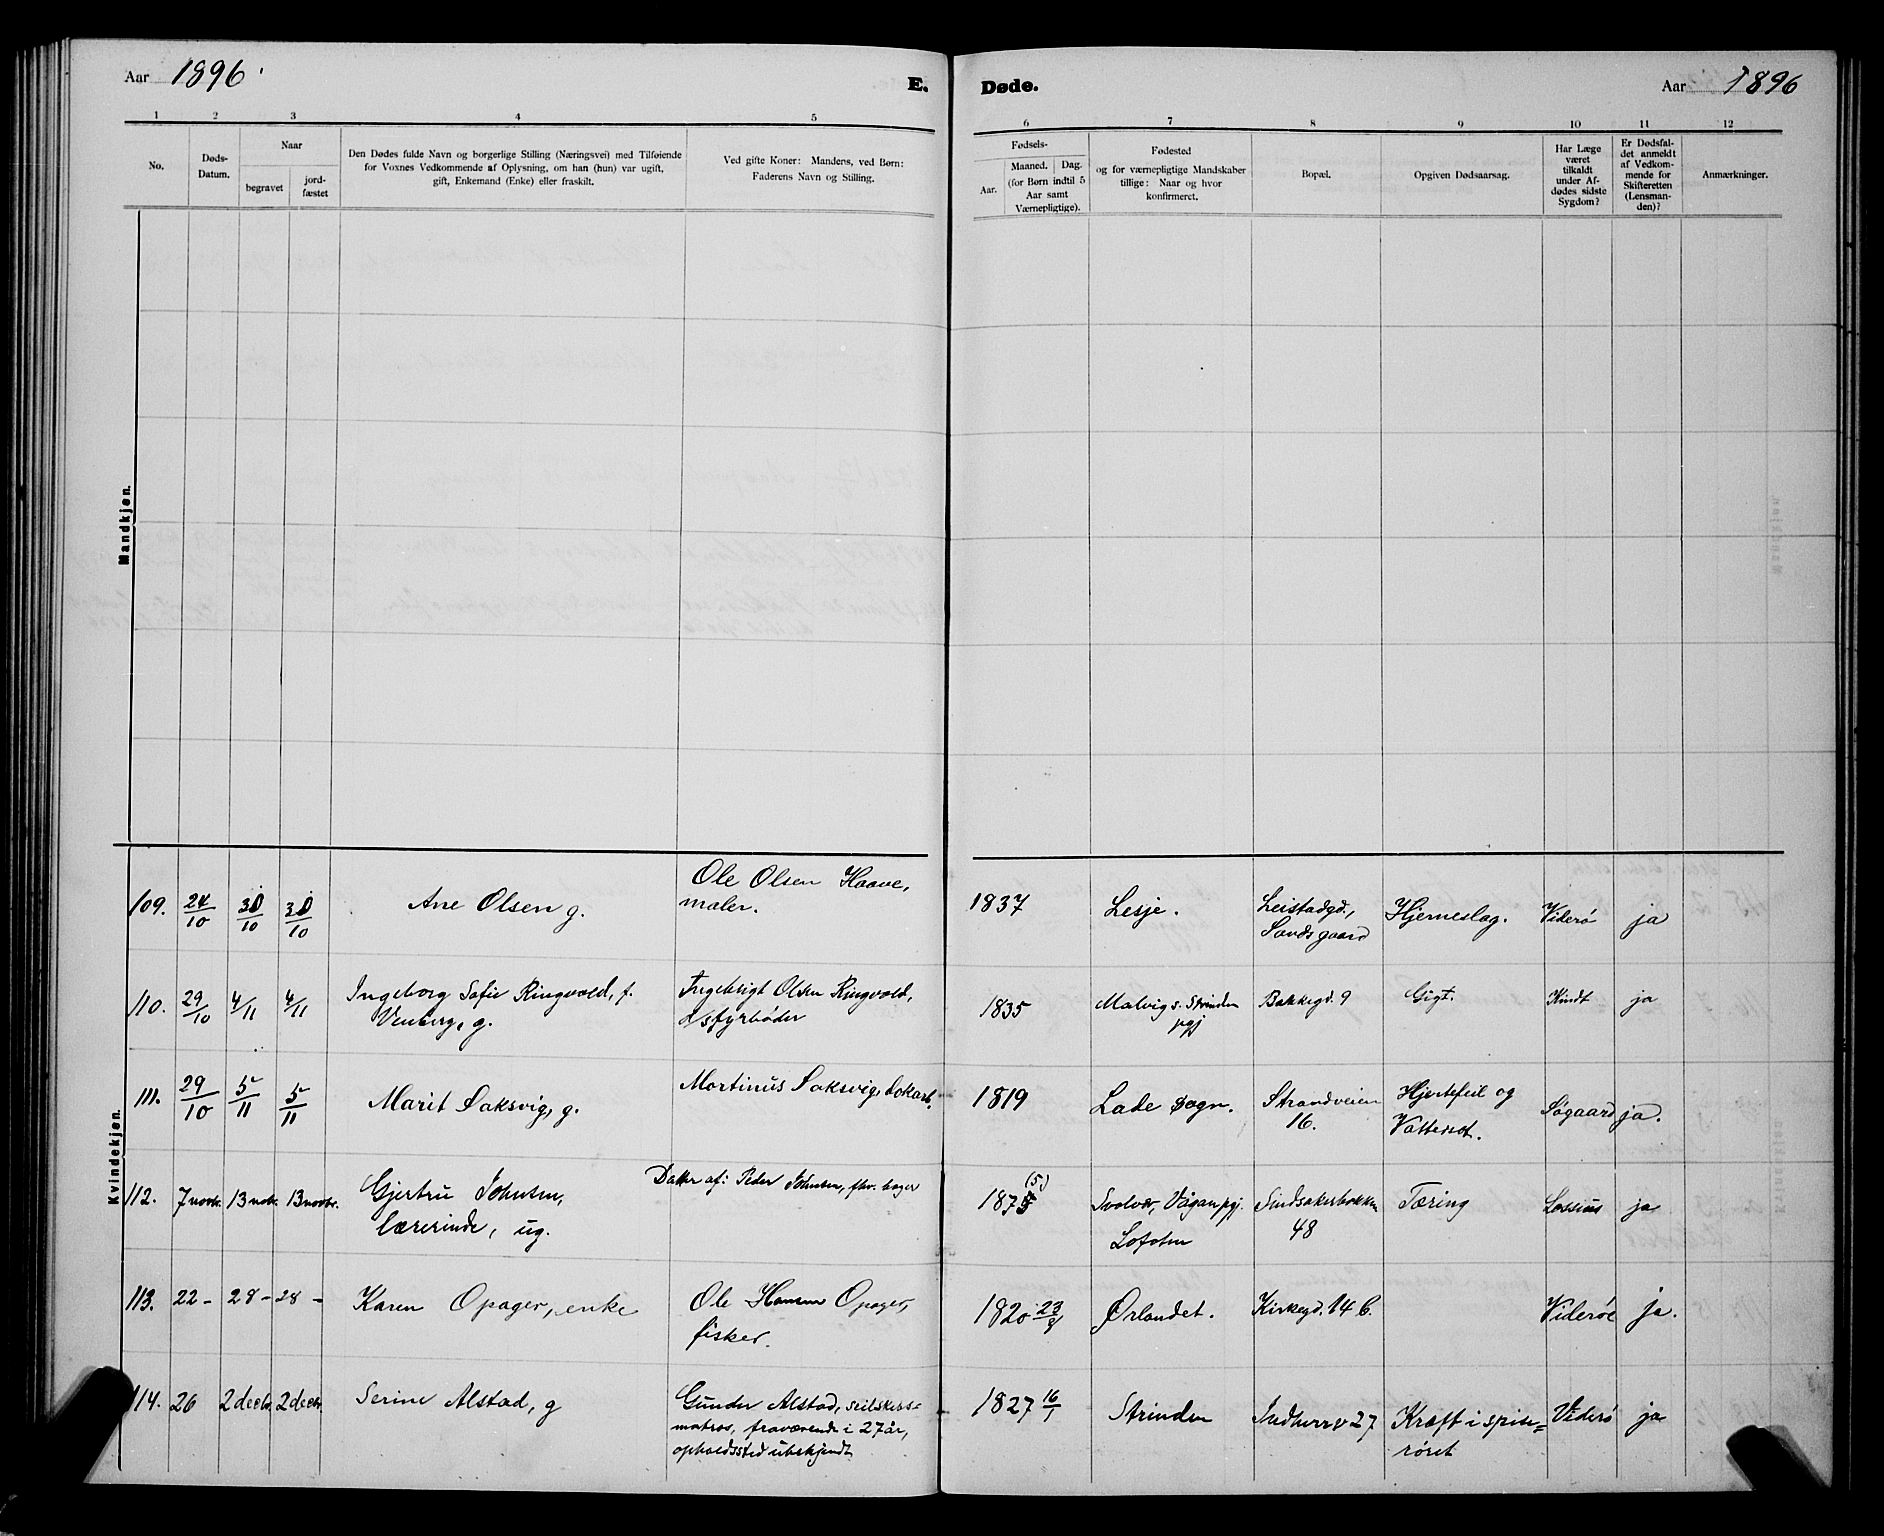 Aar 1896.
E.
Døde.
Aar 1896
1 2 3 4 5 6 7 8 9 10 11 12
No.
Døds-
Datum.
Naar
begravet
jord-
fæstet
Den Dødes fulde Navn og borgerlige Stilling (Næringsvei) med Tilføiende
for Voxnes Vedkommende af Oplysning, om han (hun) var ugift,
gift, Enkemand (Enke) eller fraskilt.
Ved gifte Koner: Mandens, ved Børn:
Faderens Navn og Stilling.
Fødsels-
Aar.
Maaned. Dag.
(for Børn indtil 5
Aar samt
Værnepligtige).
Fødested
og for værnepligtige Mandskaber
tillige: Naar og hvor
konfirmeret.
Bopæl.
Opgiven Dødsaarsag.
Har Læge
været
tilkaldt
under Af-
dødes sidste
Sygdom?
Er Dødsfal-
det anmeldt
af Vedkom-
mende for
Skifteretten
(Lensman-
den)?
Anmærkninger.
Mandkjøn.
Kvindekjøn.
109. 24/10 30/10 30/10
Ane Olsen g.
Ole Olsen Haave,
maler.
1837
Lesje.
Leistadgd.,
Sandsgaard
Hjerneslag.
Viderø
ja
110. 29/10 4/11 4/11
Ingeborg Sofie Ringvold, f.
g.
Ingebrigt Olsen Ringvold,
fyrbøder
1835
Malvig s. Strinden
pgj
Bakkegd. 9
Gigt.
Kindt
ja
111. 29/10 5/11 5/11
Marit Saksvig, g.
Martinus Saksvig,
1819
Lade sogn.
Strandveien
16.
Hjertefeil og
Vattersot.
Søgaard
ja.
112. 7 novbr. 13 novbr. 13 novbr.
Gjertru Johnsen,
lærerinde, ug.
Datter af: Peder Johnsen, fhv. bager
1875 (5)
Svolvær, Vågan pgj.
Lofoten
Sindsakerbakken
48
Tæring
Lossius
ja
113. 22 - 28 - 28 -
Karen Opager, enke
Ole Hansen Opager,
fisker.
1820 23/8
Ørlandet.
Kirkegd. 14 b.
Viderøe
ja.
114. 26 2 decbr. 2 decbr.
Serine Alstad, g
Gunder Alstad, seilskibs-
matros, fraværende i 27 år,
opholdssted ubekjendt
1827 16/1
Strinden
Indherrev 27
Kræft i spise=
røret
Viderø
ja